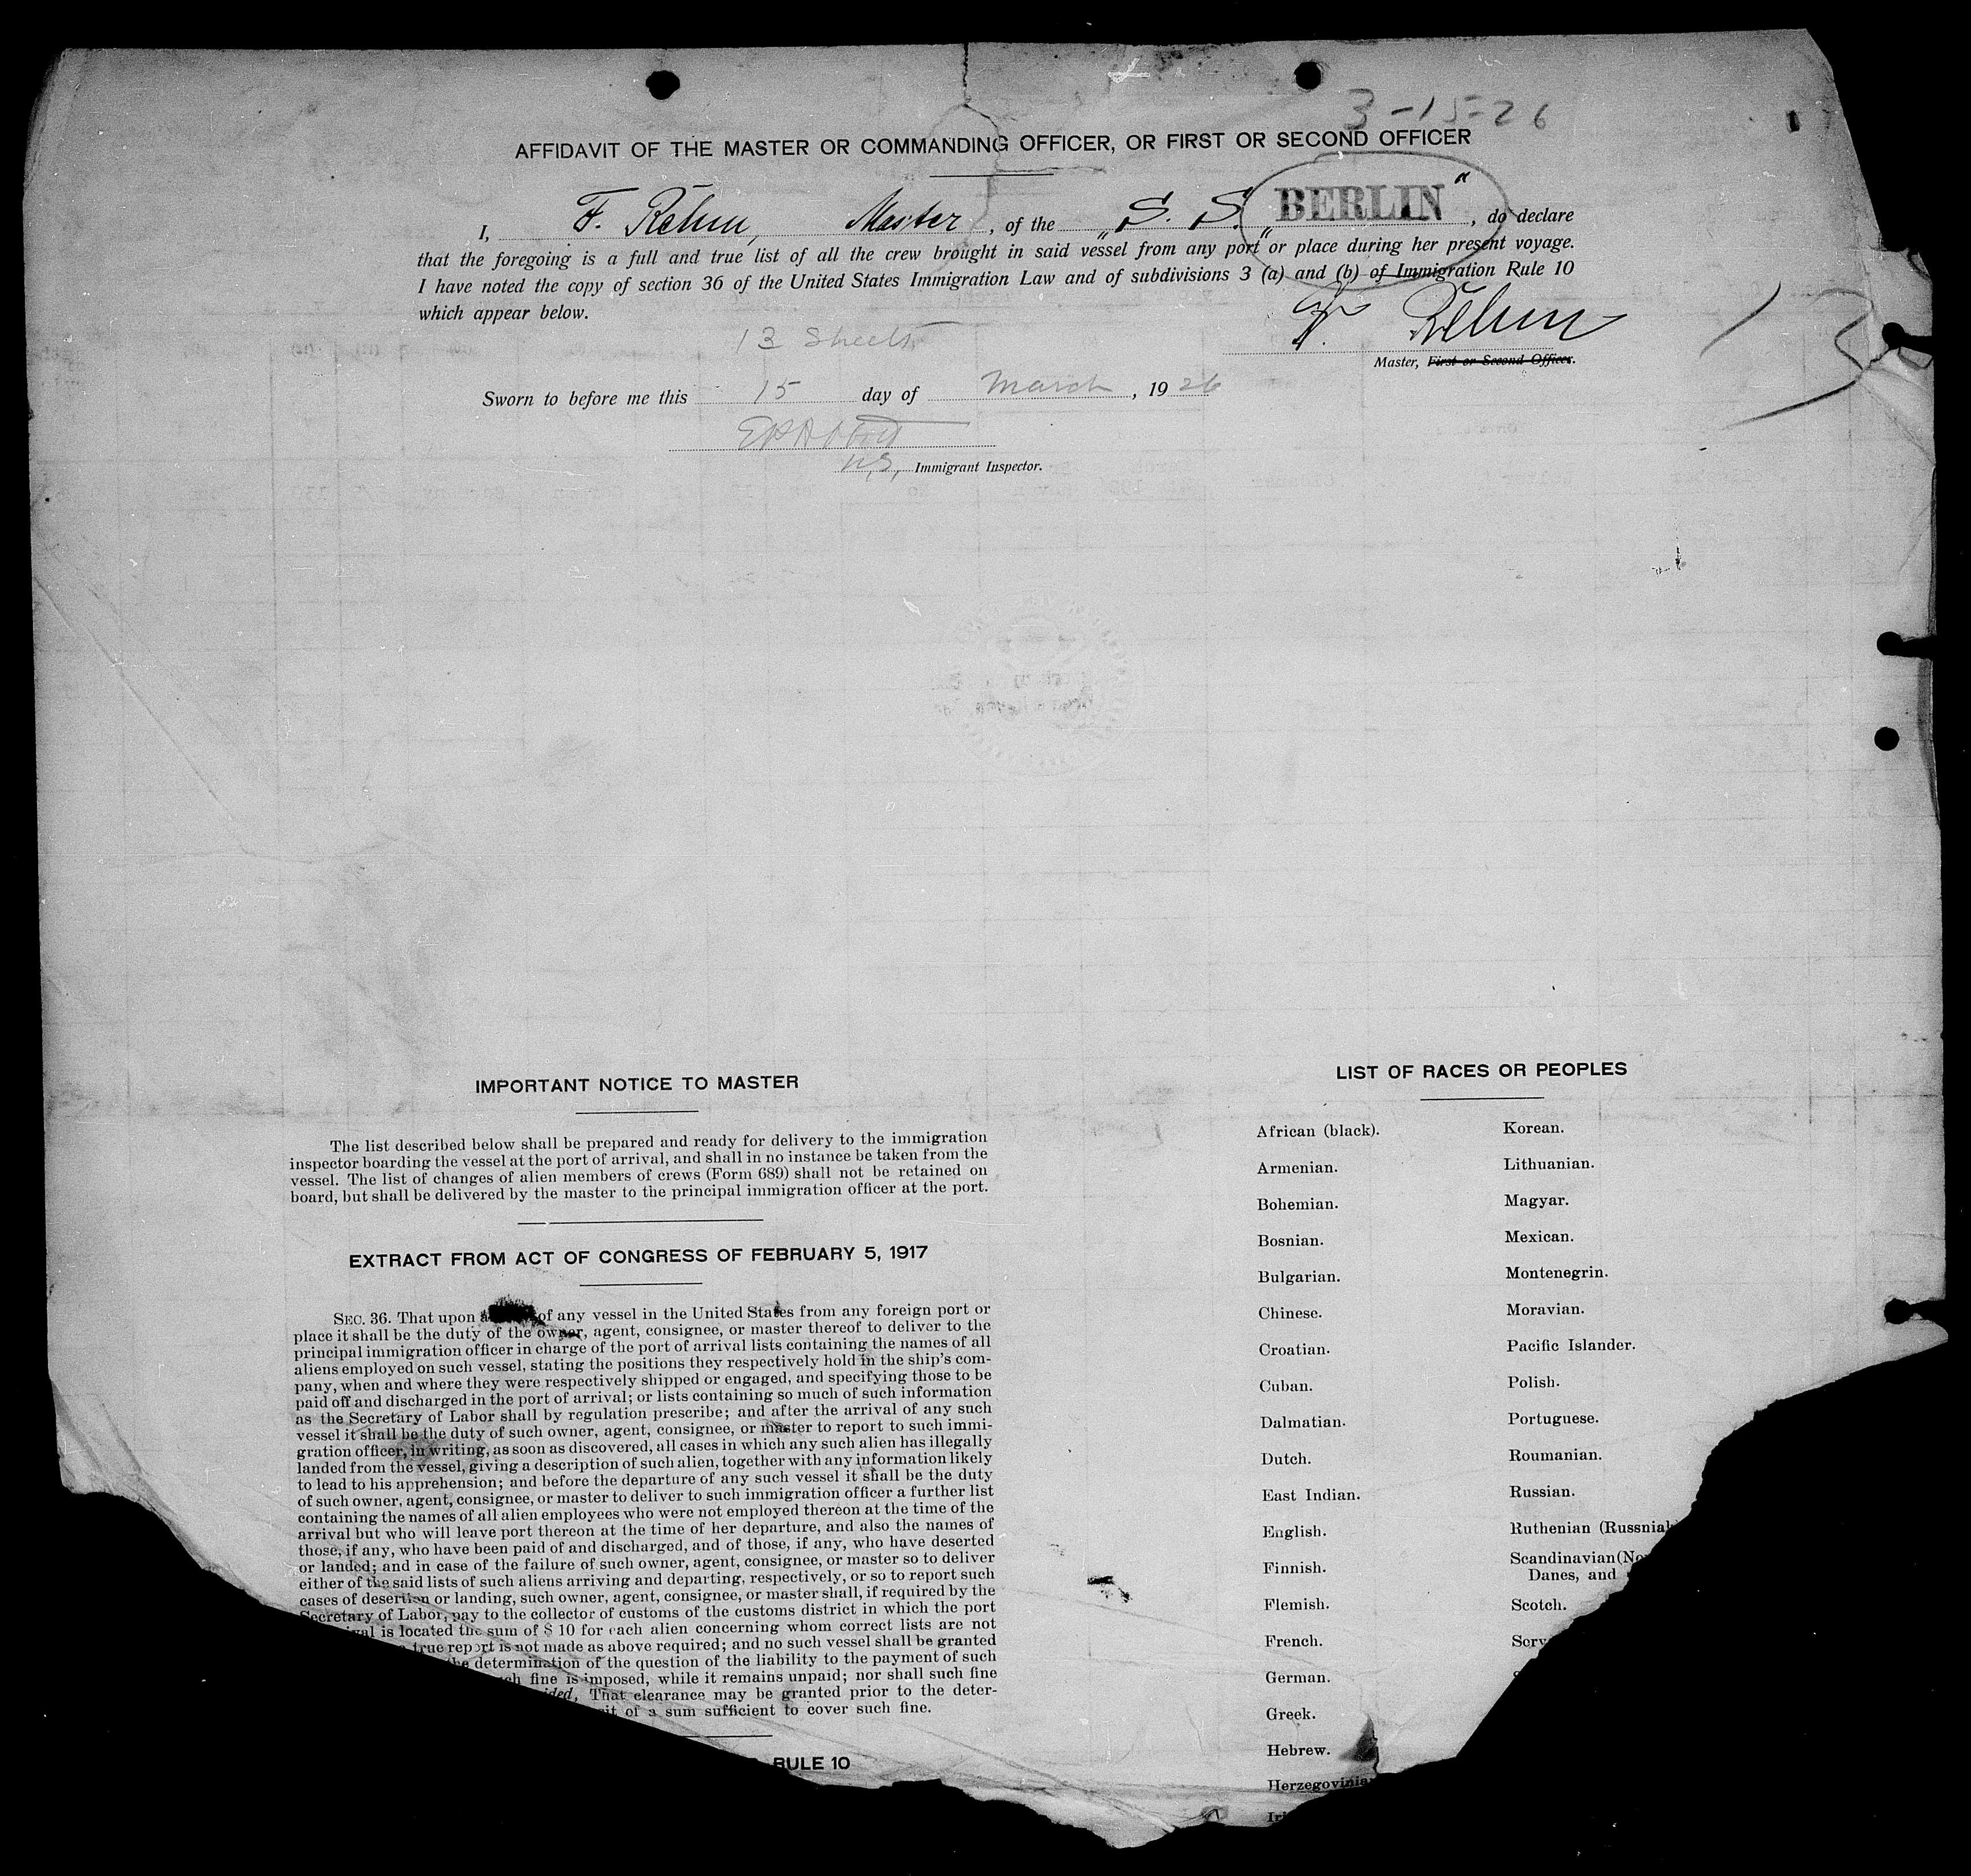 3-15-26
AFFIDAVIT OF THE MASTER OR COMMANDING OFFICER, OR FIRST OR SECOND OFFICER
I, F. Rehm, Master, of the „S. S. BERLIN", do declare
that the foregoing is a full and true list of all the crew brought in said vessel from any port or place during her present voyage.
I have noted the copy of section 36 of the United States Immigration Law and of subdivisions 3 (a) and (b) of Immigration Rule 10
which appear below.
F. Rehm
13 Sheets
Master, First or Second Officer.
Sworn to before me this 15 day of March, 1926
U.S. Immigrant Inspector.
IMPORTANT NOTICE TO MASTER
The list described below shall be prepared and ready for delivery to the immigration
inspector boarding the vessel at the port of arrival, and shall in no instance be taken from the
vessel. The list of changes of alien members of crews (Form 689) shall not be retained on
board, but shall be delivered by the master to the principal immigration officer at the port.
EXTRACT FROM ACT OF CONGRESS OF FEBRUARY 5, 1917
SEC. 36. That upon of any vessel in the United States from any foreign port or
place it shall be the duty of the owner, agent, consignee, or master thereof to deliver to the
principal immigration officer in charge of the port of arrival lists containing the names of all
aliens employed on such vessel, stating the positions they respectively hold in the ship's com-
pany, when and where they were respectively shipped or engaged, and specifying those to be
paid off and discharged in the port of arrival; or lists containing so much of such information
as the Secretary of Labor shall by regulation prescribe; and after the arrival of any such
vessel it shall be the duty of such owner, agent, consignee, or master to report to such immi-
gration officer, in writing, as soon as discovered, all cases in which any such alien has illegally
landed from the vessel, giving a description of such alien, together with any information likely
to lead to his apprehension; and before the departure of any such vessel it shall be the duty
of such owner, agent, consignee, or master to deliver to such immigration officer a further list
containing the names of all alien employees who were not employed thereon at the time of the
arrival but who will leave port thereon at the time of her departure, and also the names of
those, if any, who have been paid of and discharged, and of those, if any, who have deserted
or landed; and in case of the failure of such owner, agent, consignee, or master so to deliver
either of the said lists of such aliens arriving and departing, respectively, or so to report such
cases of desertion or landing, such owner, agent, consignee, or master shall, if required by the
Secretary of Labor, pay to the collector of customs of the customs district in which the port
is located the sum of $ 10 for each alien concerning whom correct lists are not
true report is not made as above required; and no such vessel shall be granted
the determination of the question of the liability to the payment of such
fine is imposed, while it remains unpaid; nor shall such fine
That clearance may be granted prior to the deter-
of a sum sufficient to cover such fine.
RULE 10
LIST OF RACES OR PEOPLES
African (black).
Armenian.
Bohemian.
Bosnian.
Bulgarian.
Chinese.
Croatian.
Cuban.
Dalmatian.
Dutch.
East Indian.
English.
Finnish.
Flemish.
French.
German.
Greek.
Hebrew.
Herzegovinian
Korean.
Lithuanian.
Magyar.
Mexican.
Montenegrin.
Moravian.
Pacific Islander.
Polish.
Portuguese.
Roumanian.
Russian.
Ruthenian (Russniak
Scandinavian
Danes, and
Scotch.